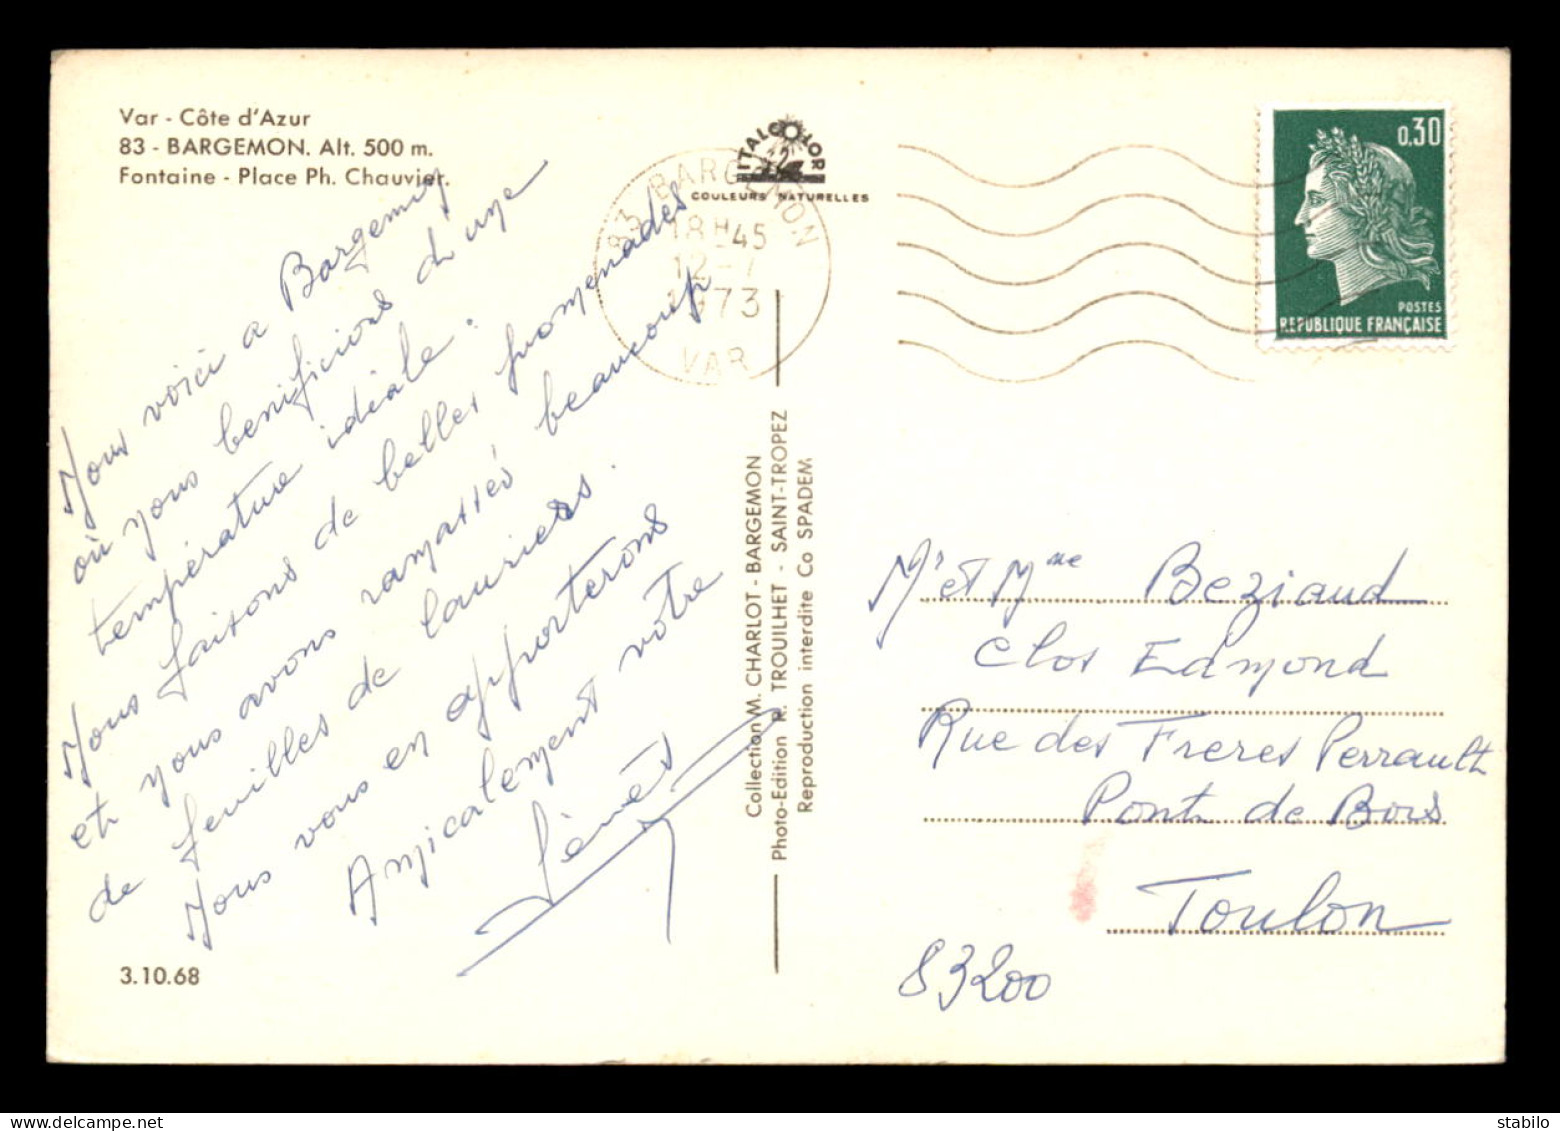 Var - Côte d'Azur
83 - BARGEMON. Alt. 500 m.
Fontaine - Place Ph. Chauvier.
ITALCOLOR
COULEURS NATURELLES
83 BARGEMON
18H45
12-7
1973
VAR
0,30
POSTES
REPUBLIQUE FRANÇAISE
Nous voici a Bargemon
où nous benificions d'une
température idéale.
Nous faisons de belles promenades
et nous avons ramassés beaucoup
de feuilles de lauriers.
Nous vous en apporterons
Amicalement votre
3.10.68
Collection M. CHARLOT - BARGEMON
Photo-Edition R. TROUILHET - SAINT-TROPEZ
Reproduction interdite Co SPADEM
Mr et Mme Beziaud
Clos Edmond
Rue des Freres Perrault
Pont de Bois
Toulon
83200
delcampe.net
stabilo